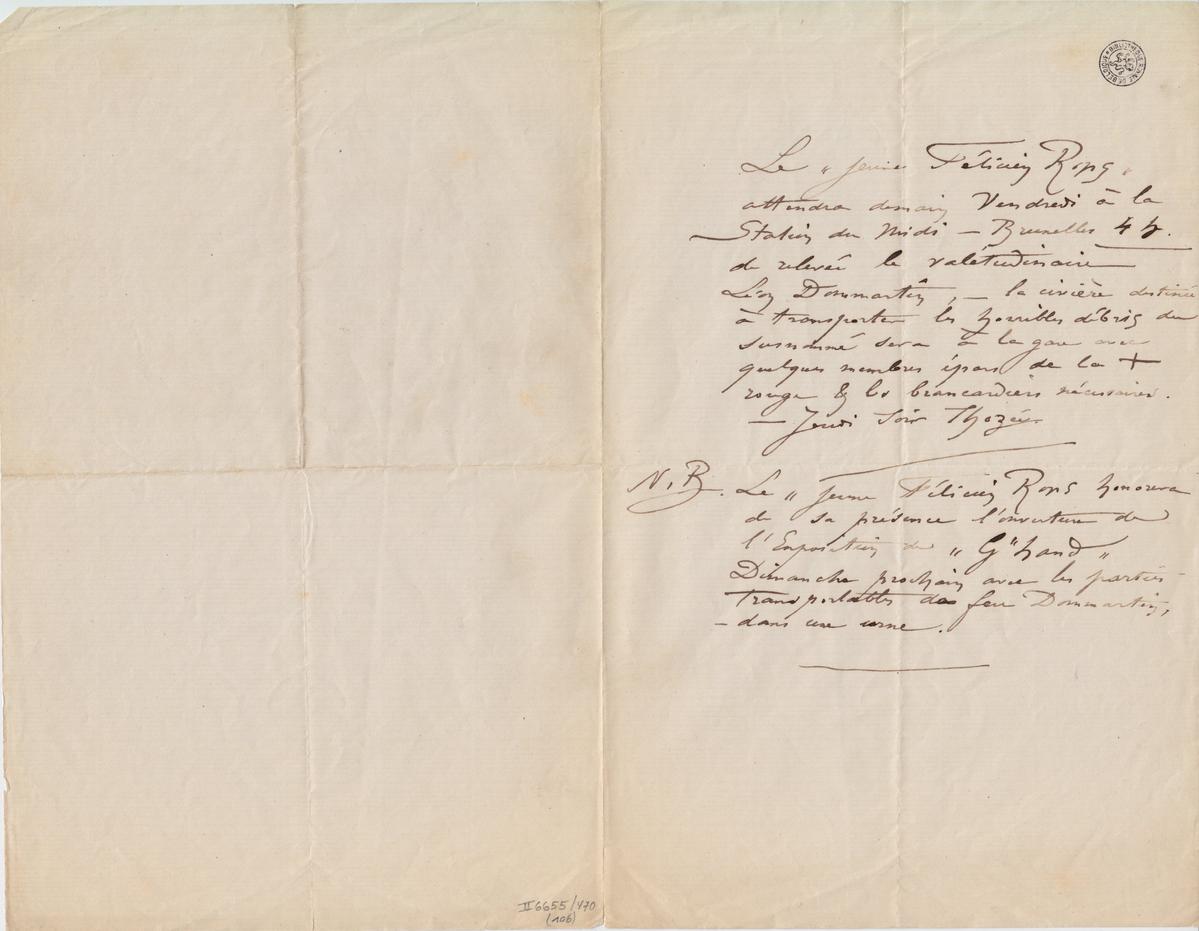 BIBLIOTHÈQUE ROYALE DE BELGIQUE
Le „ jeune Félicien Rops „
attendra demain Vendredi à la
Station du Midi – Bruxelles 4 h.
de relevée le valétudinaire
Léon Dommartin, – la civière destinée
à transporter les horribles débris du
susnommé sera à la gare avec
quelques membres épars de la +
rouge & les brancardiers nécessaires.
– Jeudi Soir Thozée
N.B. Le „ jeune Félicien Rops honorera
de sa présence l'ouverture de
l'Exposition de „ G'hand „
Dimanche prochain avec les parties
transportables de feu Dommartin,
– dans une urne.
II 6655/470
(106)